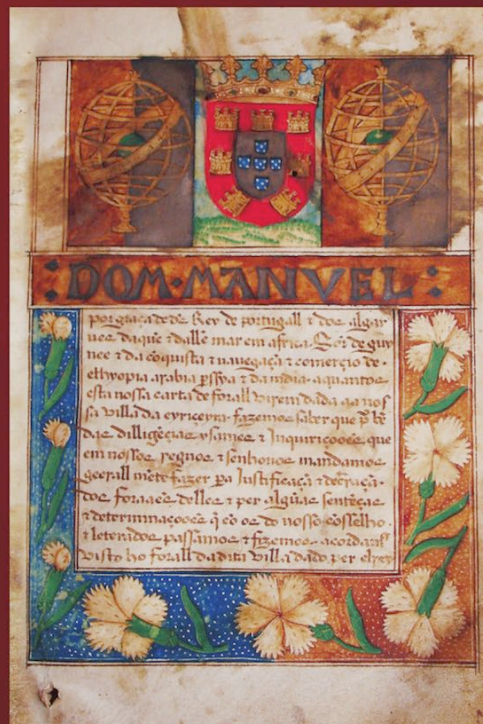 : DOM · MANVEL :
por graça de ds Rey de portugall ⁊ dos algar
ues daque ⁊ dalle mar em africa. Sor de guy
nee ⁊ da cōquista ⁊ nauegaçã ⁊ comerçio de
ethyopia arabia pssya ⁊ da india · aquantos
esta nossa carta de forall virem dada aa nos
sa villa da eyriceyra · fazemos saber que p be
das dilligēçias ysames ⁊ Inquiricoões que
em nossos regnos ⁊ senhorios mandamos
geerall mēte fazer pa Justificaçã ⁊ decraçã ·
dos foraaes delles ⁊ per algūas sentēças
⁊ determinaçoões q̄ cō os do nosso cōsselho ·
⁊ leterados passamos ⁊ fizemos · acordarã
visto ho forall da dita villa dado per elrey